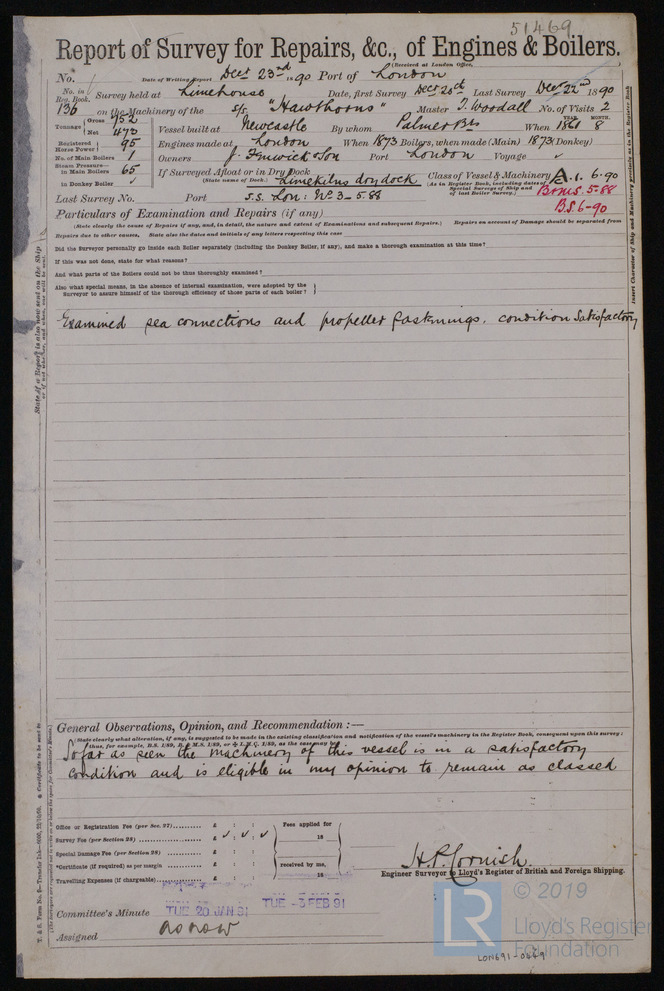 51469
Report of Survey for Repairs, &c., of Engines & Boilers.
(Received at London Office,
No. Date of Writing Report Decr 23rd 1890 Port of London
No. in Reg. Book. Survey held at Limehouse Date, first Survey Decr 20th Last Survey Decr 22nd 1890
136 on the Machinery of the s/s "Hawthorns" Master J. Woodall No. of Visits 2
Tonnage Gross 752 Net 473
Vessel built at Newcastle By whom Palmer Brs When YEAR. 1861 MONTH. 8
Registered Horse Power 95
Engines made at London When 1873 Boilers, when made (Main) 1873 (Donkey)
No. of Main Boilers 1
Owners J. Fenwick & Son Port London Voyage
Steam Pressure in Main Boilers 65
in Donkey Boiler
If Surveyed Afloat or in Dry Dock Limekilns dry dock
(State name of Dock.)
Class of Vessel & Machinery A.1. 6.90
(As in Register Book, including dates of Special Surveys of Ship and of last Boiler Survey.)
B&MS. 5-88
B.S. 6-90
Last Survey No. Port S.S. Lon: No 3-5.88
Particulars of Examination and Repairs (if any)
(State clearly the cause of Repairs (if any, and, in detail, the nature and extent of Examinations and subsequent Repairs.) Repairs on account of Damage should be separated from
Repairs due to other causes. State also the dates and initials of any letters respecting this case
Did the Surveyor personally go inside each Boiler separately (including the Donkey Boiler, if any), and make a thorough examination at this time?
If this was not done, state for what reasons?
And what parts of the Boilers could not be thus thoroughly examined?
Also what special means, in the absence of internal examination, were adopted by the
Surveyor to assure himself of the thorough efficiency of those parts of each boiler?
Examined sea connections and propeller fastenings, condition Satisfactory
Insert Character of Ship and Machinery precisely as in the Register Book
State if a Report is also now sent on the Ship
or if not whether, and when, one will be sent.
General Observations, Opinion, and Recommendation :—
(State clearly what alteration, if any, is suggested to be made in the existing classification and notification of the vessel's machinery in the Register Book, consequent upon this survey:
So far as seen the machinery of this vessel is in a satisfactory
condition and is eligible in my opinion to remain as classed
Office or Registration Fee (per Sec. 27) £ : :
Survey Fee (per Section 28) £ : :
Special Damage Fee (per Section 28) £ : :
*Certificate (if required) as per margin £ : :
Travelling Expenses (if chargeable) £ : :
Fees applied for
18
received by me,
18
H.P. Cornish.
Engineer Surveyor to Lloyd's Register of British and Foreign Shipping.
Committee's Minute TUE 20 JAN 91 TUE -3 FEB 91
Assigned as now
LR © 2019
Lloyd's Register
Foundation
LON691-0669